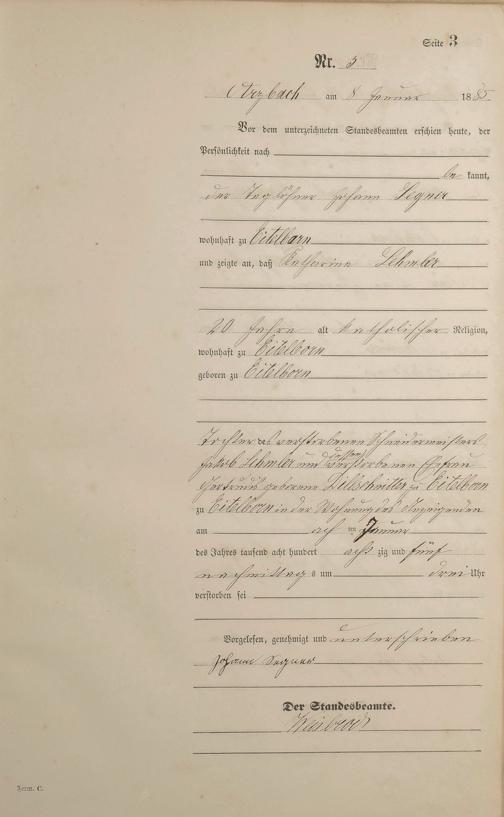 Seite 3
Nr. 3
Arzbach am 8 Januar 1885.
Vor dem unterzeichneten Standesbeamten erschien heute, der
Persönlichkeit nach
be kannt,
der Taglöhner Johann Segner
wohnhaft zu Eitelborn
und zeigte an, daß Katharina Lehmler
20 Jahre alt katholischer Religion,
wohnhaft zu Eitelborn
geboren zu Eitelborn
Tochter des verstorbenen Schneidermeisters
Jakob Lehmler und verstorbenen Ehefrau
Gertrud geborene zu Eitelborn
zu Eitelborn in der Wohnung des Anzeigenden
am acht ten Januar
des Jahres tausend acht hundert acht zig und fünf
nachmittag s um drei Uhr
verstorben sei
Vorgelesen, genehmigt und unterschrieben
Johann Segner
Der Standesbeamte.
Form. C.